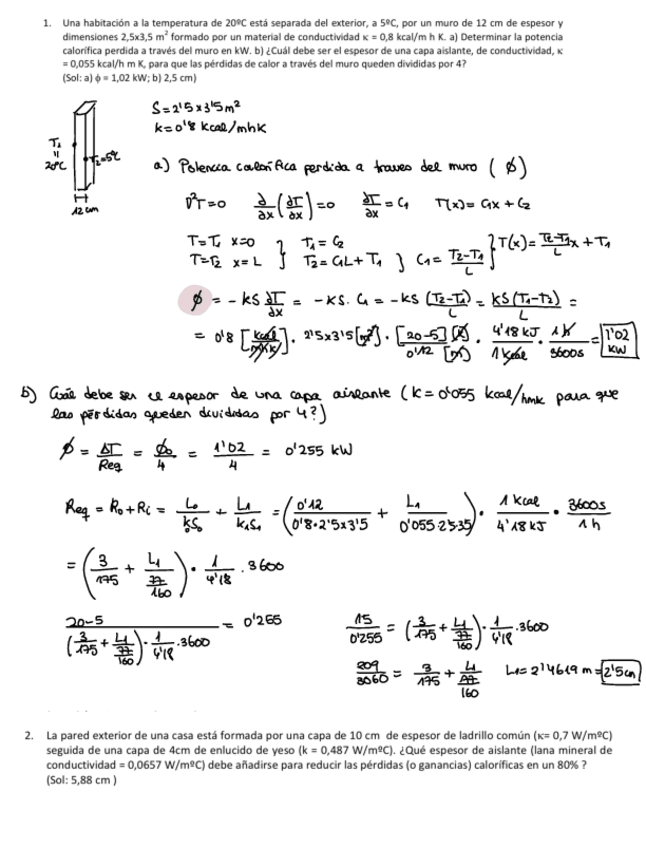 1. Una habitación a la temperatura de 20ºC está separada del exterior, a 5ºC, por un muro de 12 cm de espesor y
dimensiones 2,5x3,5 m² formado por un material de conductividad κ = 0,8 kcal/m h K. a) Determinar la potencia
calorífica perdida a través del muro en kW. b) ¿Cuál debe ser el espesor de una capa aislante, de conductividad, κ
= 0,055 kcal/h m K, para que las pérdidas de calor a través del muro queden divididas por 4?
(Sol: a) ϕ = 1,02 kW; b) 2,5 cm)
S = 2'5 x 3'5 m²
k = 0'8 kcal/mhK
T₁ = 20ºC
T₂=5ºC
12 cm
a) Potencia calorífica perdida a traves del muro (ϕ)
∇²T=0 ∂/∂x (∂T/∂x) = 0 ∂T/∂x = C₁ T(x) = C₁x + C₂
T=T₁ x=0 } T₁ = C₂
T=T₂ x=L } T₂ = C₁L + T₁ } C₁ = (T₂-T₁)/L } T(x) = (T₂-T₁)/L x + T₁
ϕ = -kS ∂T/∂x = -kS. C₁ = -kS (T₂-T₁)/L = kS(T₁-T₂)/L =
= 0'8 [kcal/mhK] . 2'5x3'5 [m²] . [20-5] [K]/0'12 [m] . 4'18 kJ/1 kcal . 1 h/3600s = 1'02 kW
b) Cuál debe ser el espesor de una capa aislante (k = 0'055 kcal/hmk para que
las pérdidas queden divididas por 4?)
ϕ = ΔT/Req = ϕ₀/4 = 1'02/4 = 0'255 kW
Req = R₀ + Ri = L₀/kS₀ + L₁/k₁S₁ = (0'12/0'8·2'5x3'5 + L₁/0'055·2'5·3'5) · 1 kcal/4'18 kJ · 3600s/1h
= (3/175 + L₁/(77/160)) · 1/4'18 . 3600
20-5/((3/175 + L₁/(77/160)) · 1/4'18 · 3600) = 0'255
15/0'255 = (3/175 + L₁/(77/160)) · 1/4'18 · 3600
209/3060 = 3/175 + L₁/(77/160) L₁= 2'4619 m = 2'5cm
2. La pared exterior de una casa está formada por una capa de 10 cm de espesor de ladrillo común (κ= 0,7 W/mºC)
seguida de una capa de 4cm de enlucido de yeso (k = 0,487 W/mºC). ¿Qué espesor de aislante (lana mineral de
conductividad = 0,0657 W/mºC) debe añadirse para reducir las pérdidas (o ganancias) caloríficas en un 80% ?
(Sol: 5,88 cm )